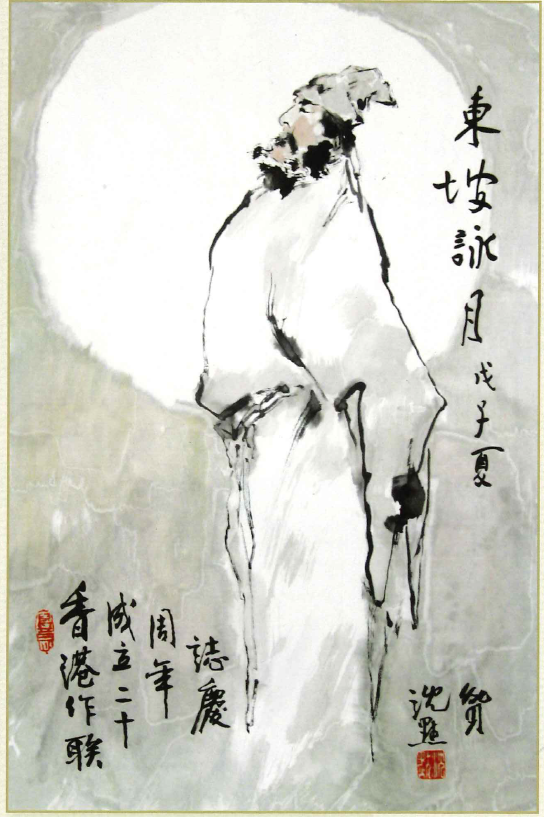 東坡詠月 戊子夏
香港作联
成立二十
周年
誌慶
沈